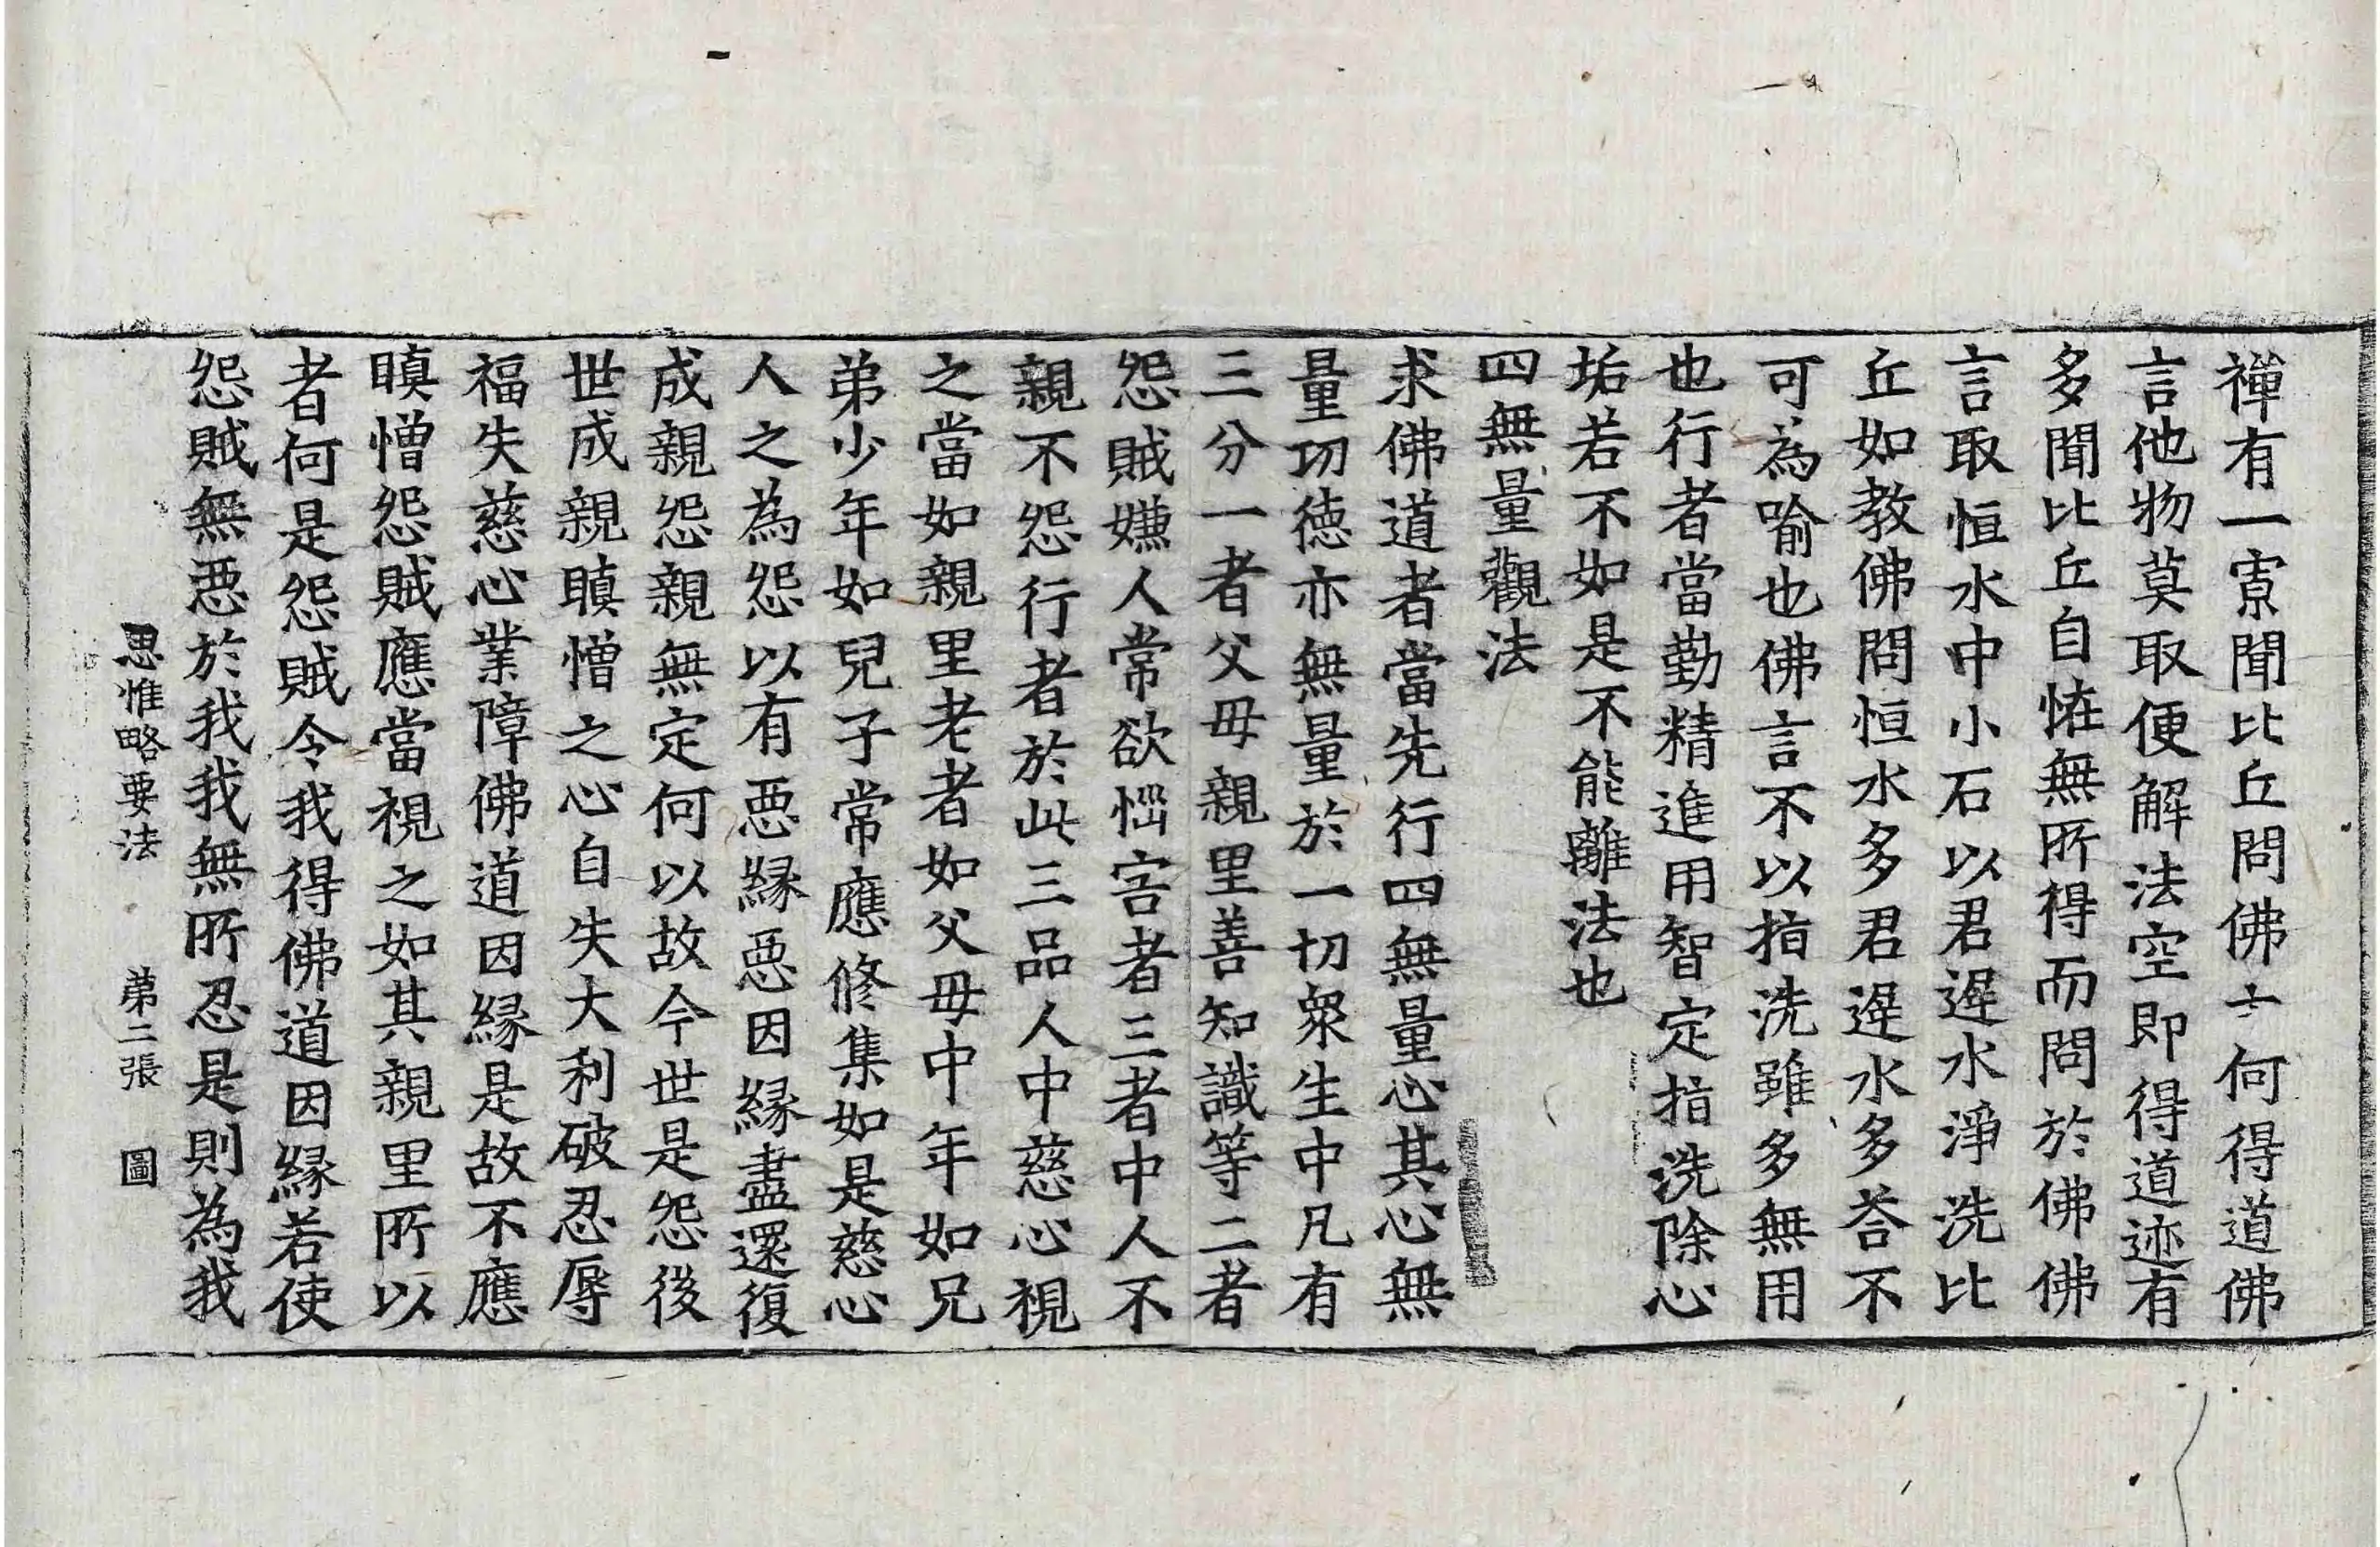 禪有一寡聞比丘問佛云何得道佛
言他物莫取便解法空即得道迹有
多聞比丘自恠無所得而問於佛佛
言取恒水中小石以君遲水淨洗比
丘如教佛問恒水多君遲水多荅不
可為喻也佛言不以指洗雖多無用
也行者當勤精進用智定指洗除心
垢若不如是不能離法也
四無量觀法
求佛道者當先行四無量心其心無
量功徳亦無量於一切衆生中凡有
三分一者父母親里善知識等二者
怨賊嫌人常欲惱害者三者中人不
親不怨行者於此三品人中慈心視
之當如親里老者如父母中年如兄
弟少年如兒子常應修集如是慈心
人之為怨以有惡緣惡因緣盡還復
成親怨親無定何以故今世是怨後
世成親瞋憎之心自失大利破忍辱
福失慈心業障佛道因緣是故不應
瞋憎怨賊應當視之如其親里所以
者何是怨賊令我得佛道因緣若使
怨賊無惡於我我無所忍是則為我
思惟略要法 第二張 圖